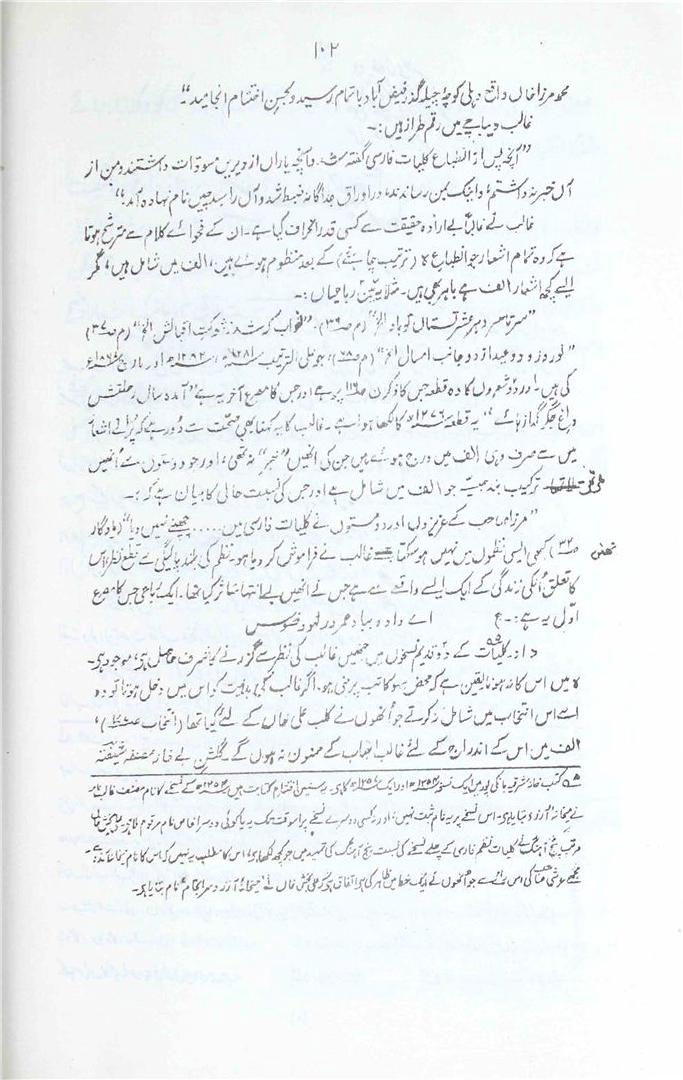 ۱۰۲
محمد مرزا خاں واقع دہلی کوچۂ چیلہ گذر فیض آباد باتمام رسید و بحسن اختتام انجامید"۔
غالب دیباچے میں رقم طراز ہیں:۔
"آنچہ پس از انطباع کلیات فارسی گفتہ شد، وآنچہ یاراں از دیریں مسودات داشتند و من از
آں خبر نہ داشتم، و اینک بمن رساندند، در اوراق جداگانہ ضبط شد و آں را سبد چیں نام نہادہ آمد"
غالب نے غالباً بے ارادہ حقیقت سے کسی قدر انحراف کیا ہے۔ ان کے فحوائے کلام سے مترشح ہوتا
ہے کہ وہ تمام اشعار جو انطباع کلا (ترتیب چاہئے) کے بعد منظوم ہوئے ہیں، الف میں شامل ہیں، مگر
ایسے کچھ اشعار الف سے باہر بھی ہیں۔ مثلاً یہ تین رباعیاں:۔
"سرتاسر دہر عشرتستان تو باد الخ" (م ص۳۶)، "خواب کہ شد
شوکت اقبالش الخ" (م ص۳۷)
"نوروز و دو عید از دو جانب امسال الخ" (م ص۳۸)، جو علی الترتیب
اور مارچ
کی ہیں۔ اور دو شعروں کا وہ قطعہ جس کا ذکر ن ص۱۱۶ پر ہے اور جس کا مصرع آخر یہ ہے "آمدہ سال رحلتش
داغ جگر گداز ہائے" یہ قطعہ ۱۲۷۶ھ کا لکھا ہوا ہے۔ غالب کا یہ کہنا بھی صحت سے دُور ہے کہ پرانے اشعار
میں سے صرف وہی الف میں درج ہوئے ہیں جن کی انھیں "خبر" نہ تھی، اور جو دوستوں سے اُنھیں
ترکیب بند حبسیہ جو الف میں شامل ہے اور جس کی نسبت حالی کا بیان ہے کہ:۔
"مرزا صاحب کے عزیزوں اور دوستوں نے کلیات فارسی میں ..... چھپنے نہیں دیا" (یادگار
ص۳۲) کبھی ایسی نظموں میں نہیں ہو سکتا جسے غالب نے فراموش کر دیا ہو۔ نظم کی بلند پائیگی سے قطع نظر، اس
کا تعلق اُنکی زندگی کے ایک ایسے واقعے سے ہے جس نے انھیں بے انتہا متاثر کیا تھا۔ ایک رباعی جس کا مصرع
اول یہ ہے:۔ ع اے دادہ بباد عمر در لہو و فسوس
کلیات کے دو قدیم نسخوں میں جنھیں غالب کی نظر سے گزرنے کا شرف حاصل ہے، موجود ہے۔
کلا میں اس کا نہ ہونا یقین ہے کہ محض سہو کاتب پر مبنی ہو۔ اگر غالب کی ہدایت کو اس میں دخل ہوتا تو وہ
اسے اس انتخاب میں شامل نہ کرتے جو اُنھوں نے کلب علی خاں کے لئے کیا تھا (انتخاب
)،
الف میں اس کے اندراج کے لئے غالب احباب کے ممنون نہ ہوں گے۔ گلشن بے خار مصنفہ شیفتہ
کتب خانہ مشرقیہ بانکی پور میں ایک نسخہ ۱۲۵۴ھ اور ایک
کا ہے۔ یہ سنین اختتام کتابت ہیں
کے نسخے کا نام مصنف غالبیات
نے میخانۂ آرزو بتایا ہے۔ اس نسخے پر یہ نام ثبت نہیں، اور نہ کسی دوسرے نسخے پر اس وقت تک یہ یا کوئی دوسرا خاص نام مرقوم
مرتب پنج آہنگ نے کلیات نظم فارسی کے پہلے نسخے کی نسبت پنج آہنگ کی تمہید میں جو کچھ لکھا ہے اس کا مطلب یہ نہیں کہ اس کا نام میخانۂ آرزو ہے۔
مجھے عرشی صاحب کی اس رائے سے جو اُنھوں نے ایک خط میں ظاہر کی ہے اتفاق ہے کہ علی بخش خاں نے "میخانۂ آرزو سرانجام" نام بتایا ہے۔